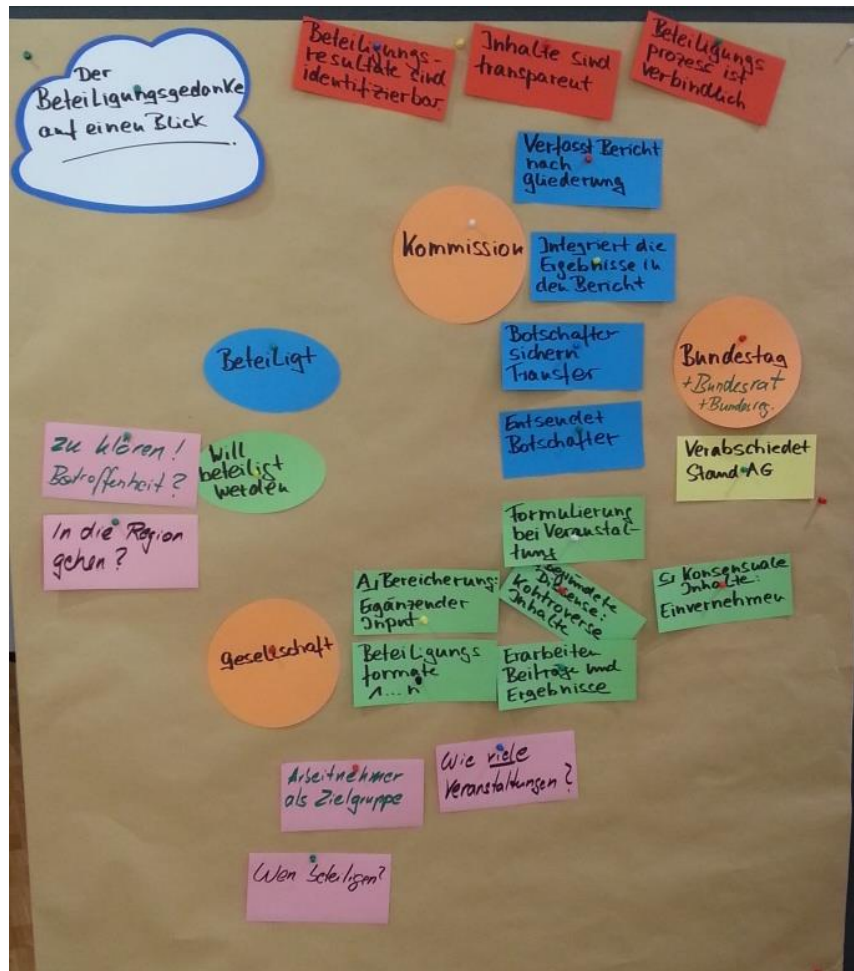 Der
Beteiligungsgedanke
auf einen Blick
Beteiligungs-
resultate sind
identifizierbar
Inhalte sind
transparent
Beteiligungs
prozess ist
verbindlich
Verfasst Bericht
nach
gliederung
Kommission
Integriert die
Ergebnisse in
den Bericht
Beteiligt
Botschafter
sichern
Transfer
Bundestag
+Bundesrat
+Bundesreg.
Entsendet
Botschafter
Verabschiedet
StandAG
zu klären!
Betroffenheit?
Will
beteiligt
werden
In die Region
gehen?
Formulierung
bei Veranstal-
tung
A) Bereicherung:
Ergänzender
Input
Begründete
Dissense:
Kontroverse
Inhalte
C) Konsensuale
Inhalte:
Einvernehmen
gesellschaft
Beteiligungs
formate
1...n
Erarbeiten
Beiträge und
Ergebnisse
Arbeitnehmer
als Zielgruppe
Wie viele
Veranstaltungen?
Wen beteiligen?